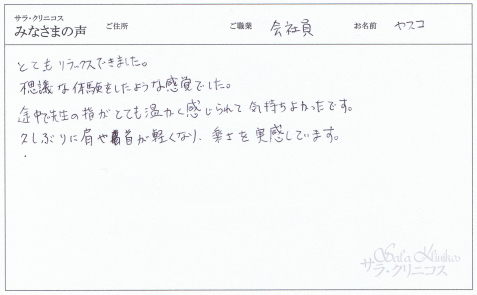 サラ・クリニコス
みなさまの声 ご住所 ご職業 会社員 お名前 ヤスコ
とてもリラックスできました。
不思議な体験をしたような感覚でした。
途中で先生の指がとても温かく感じられて気持ちよかったです。
久しぶりに肩や首が軽くなり、楽さを実感しています。
Sala Klinikos
サラ・クリニコス